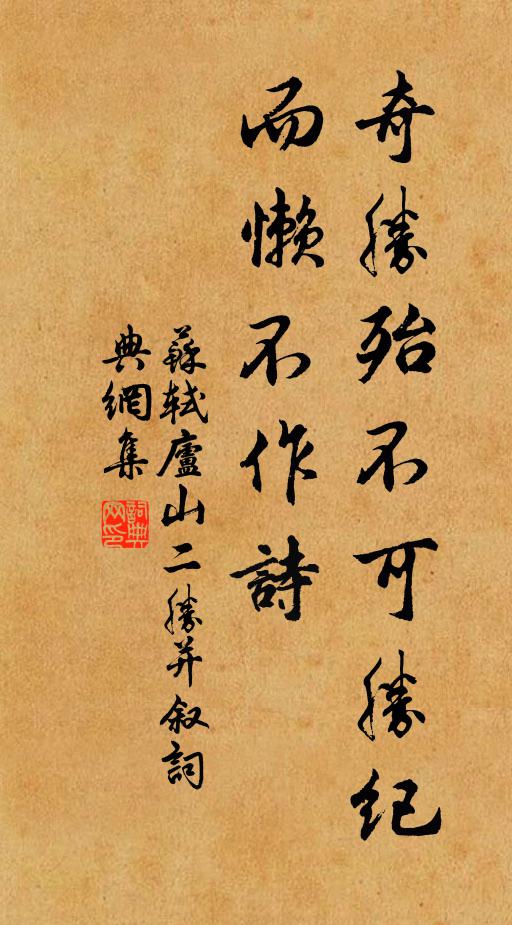 奇勝殆不可勝紀
而懶不作詩
蘇軾廬山二勝并叙詞
典網集
詞典網印